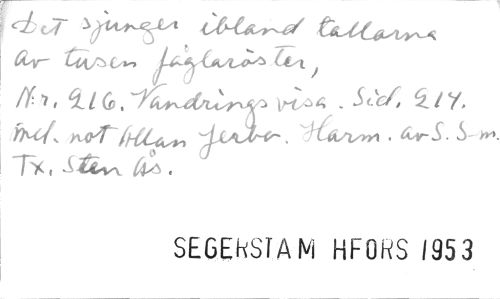 Det sjunger ibland tallarna
av tusen fåglaröster,
N:r. 216. Vandringsvisa. Sid. 214.
mel. not Allan Jerbo. Harm. av S. S-m.
Tx. Sten Ås.
SEGERSTAM HFORS 1953